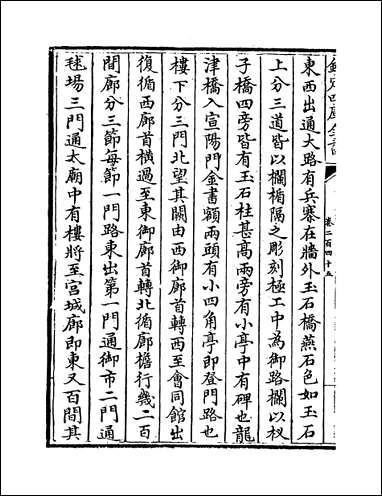 欽定四庫全書
卷二百四十五
東西出通大路有兵寨在牆外玉石橋燕石色如玉石
上分三道皆以欄楯隔之彫刻極工中為御路欄以杈
子橋四旁皆有玉石柱甚高兩旁有小亭中有碑也龍
津橋入宣陽門金書額兩頭有小四角亭即登門路也
樓下分三門北望其闕由西御廊首轉西至會同館出
復循西廊首橫過至東御廊首轉北循廊檐行幾二百
間廊分三節每節一門路東出第一門通御市二門通
毬場三門通太廟中有樓將至宮城廊即東又百間其